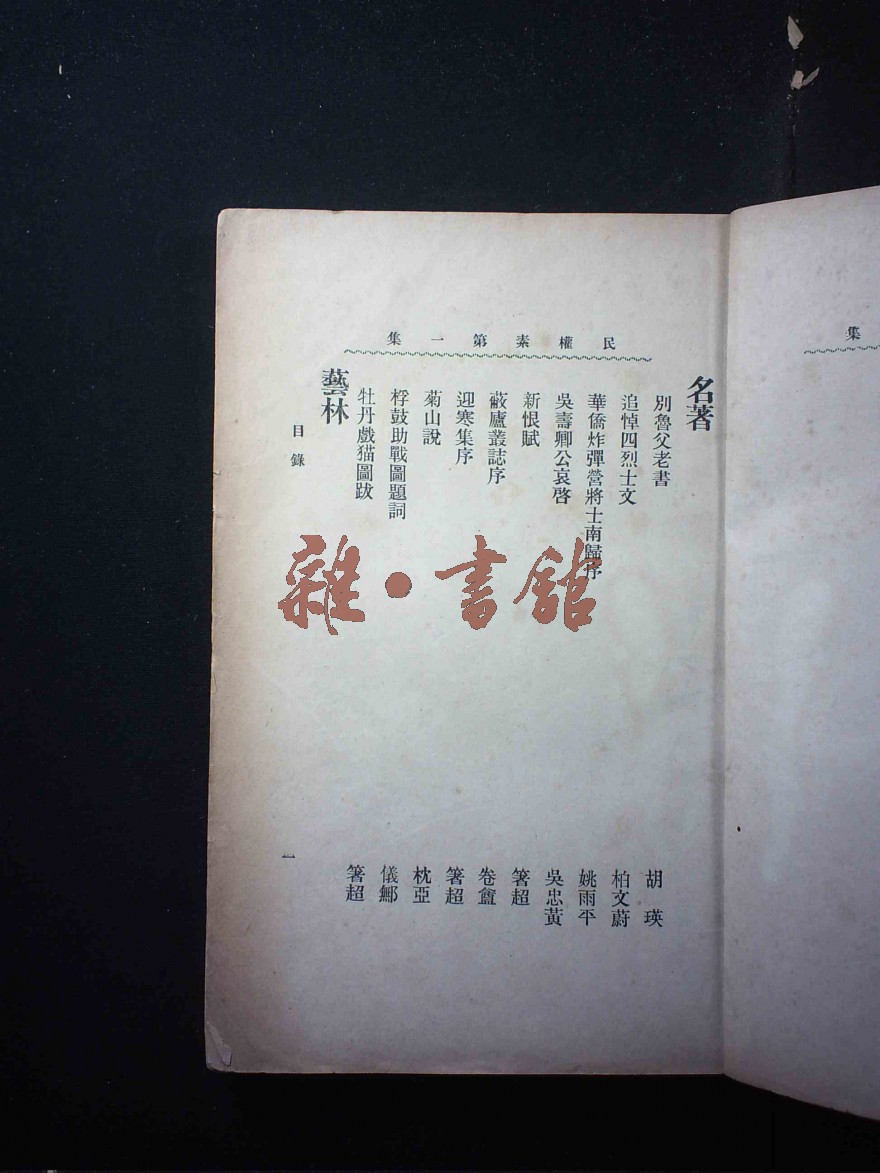 集
民權素第一集
名著
別魯父老書 胡瑛
追悼四烈士文 柏文蔚
華僑炸彈營將士南歸序 姚雨平
吳壽卿公哀啓 吳忠黃
新恨賦 箸超
廬叢誌序 卷盦
迎寒集序 箸超
菊山說 枕亞
桴鼓助戰圖題詞 儀鄦
牡丹戲猫圖跋 箸超
藝林
目錄
一
雜·書館